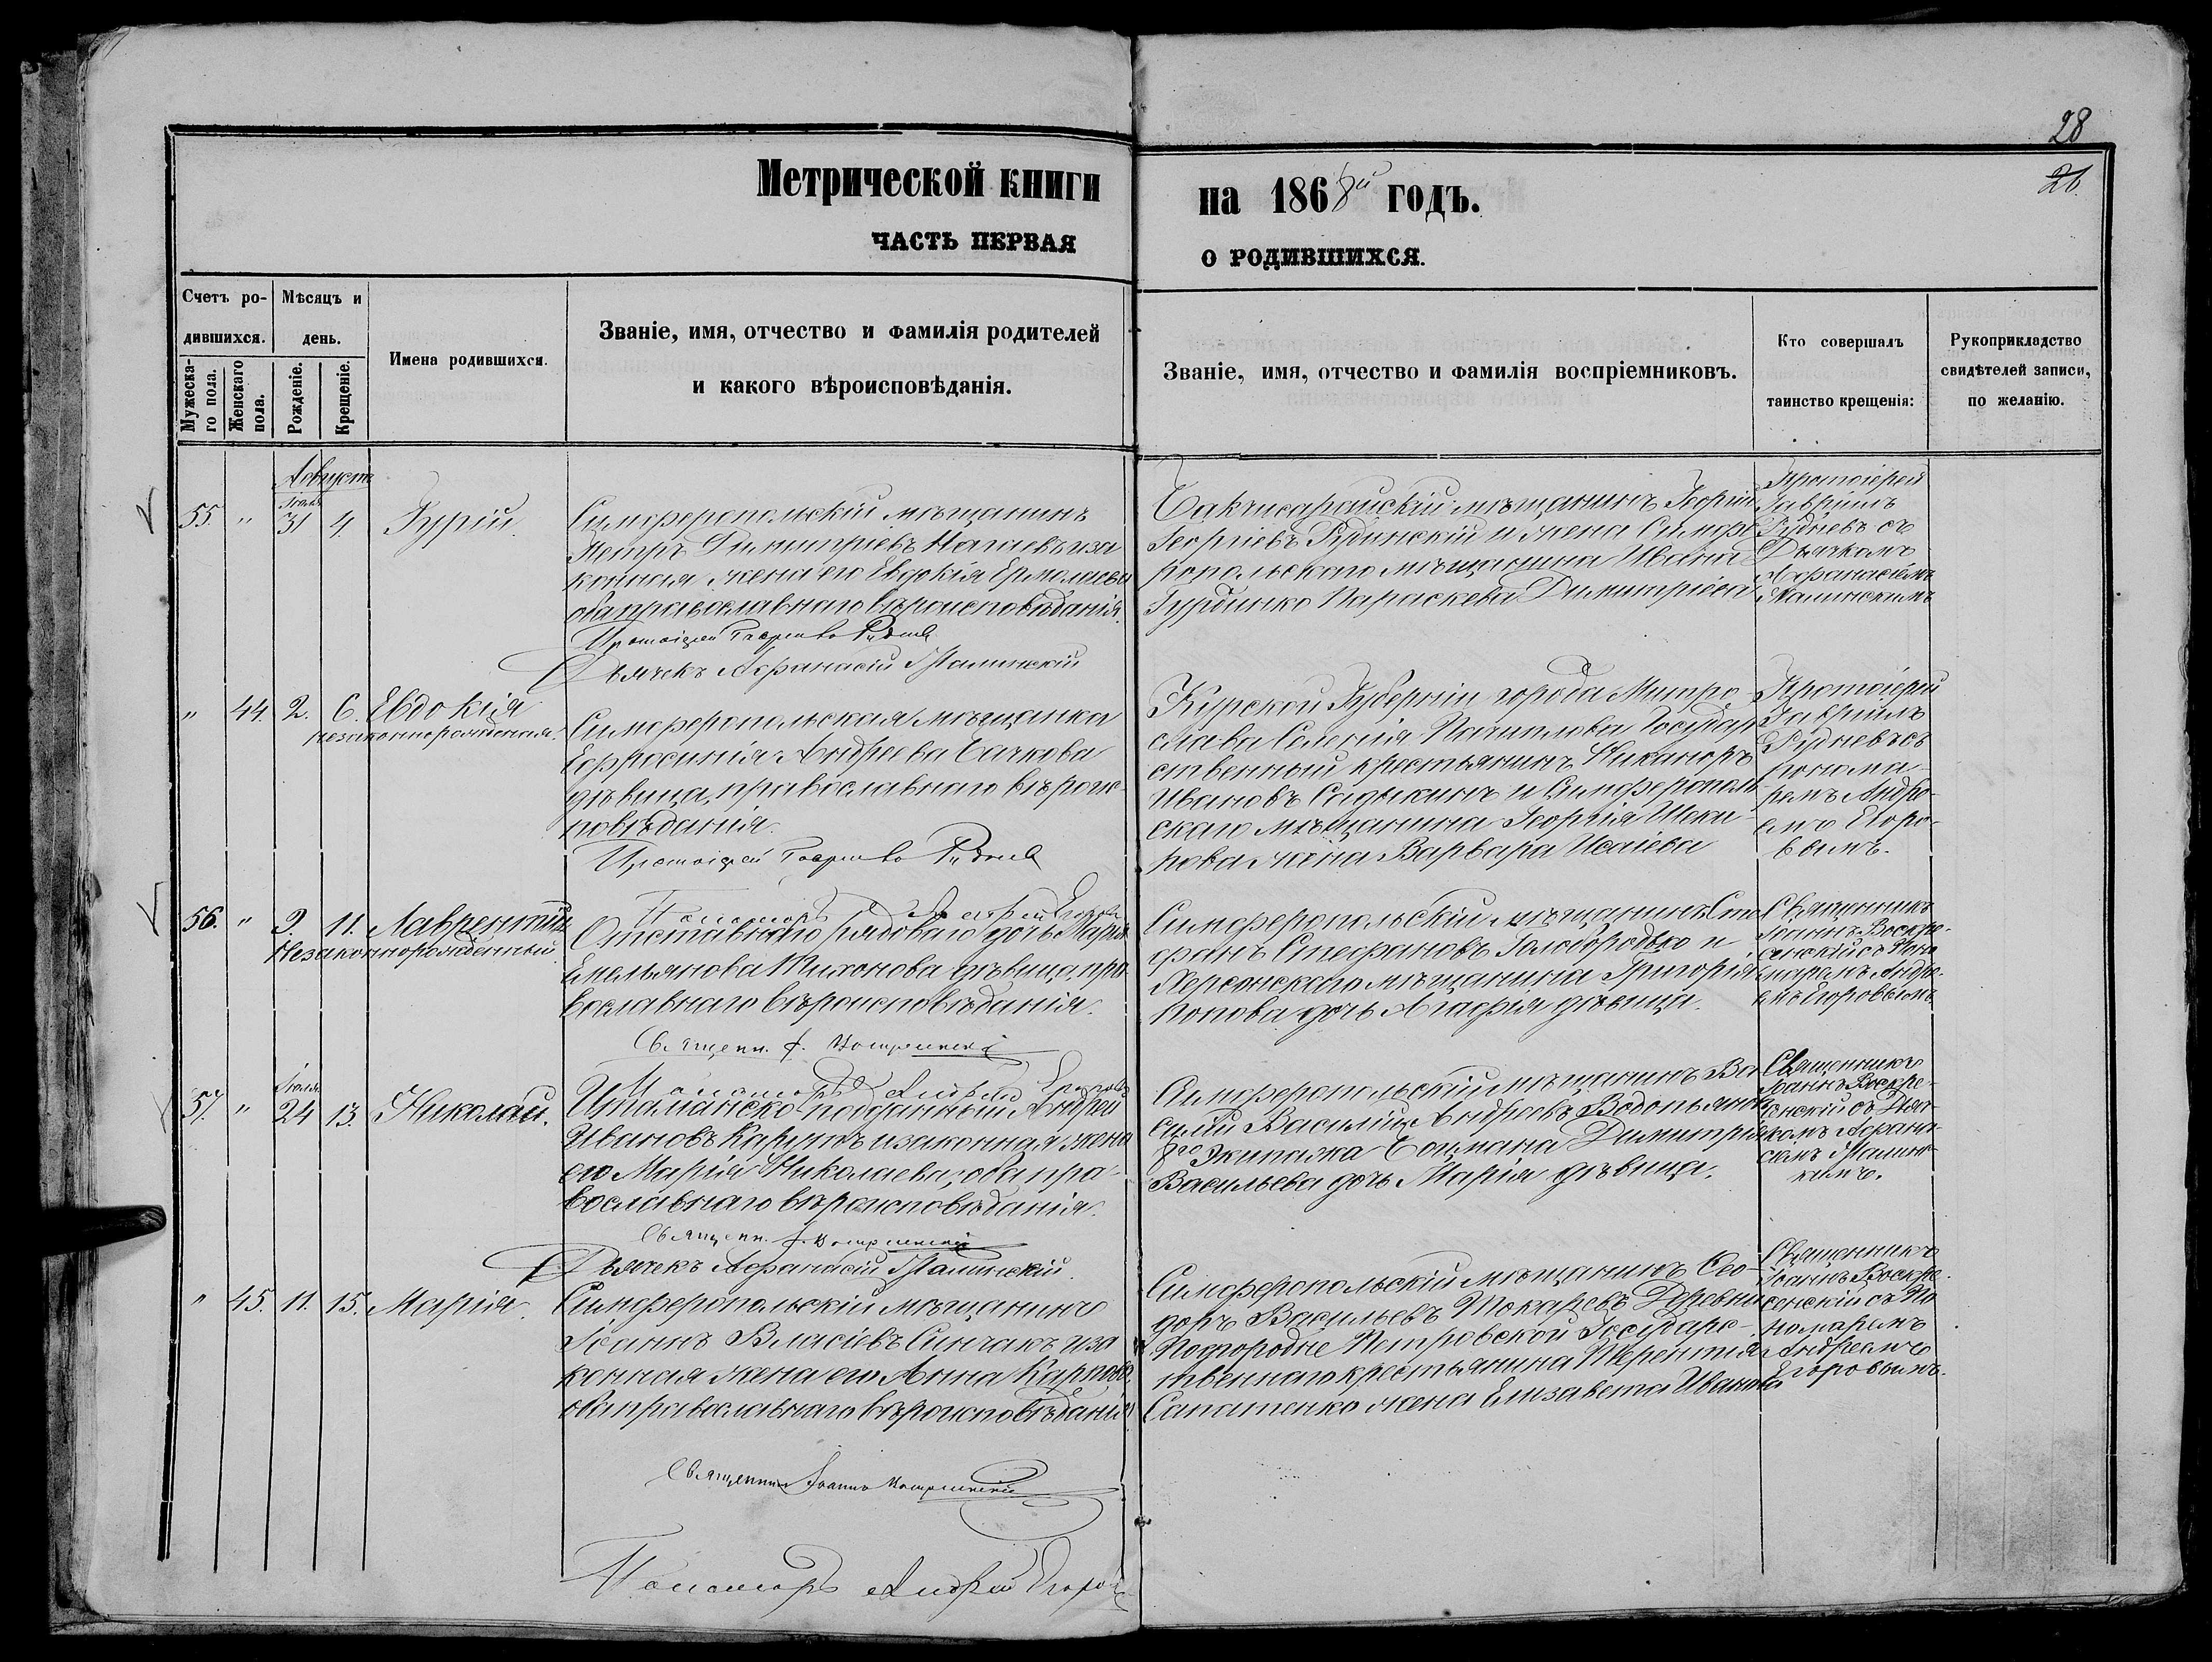 28
26.
Метрической книги
на 1868й годъ.
ЧАСТЬ ПЕРВАЯ
О РОДИВШИХСЯ.
Счетъ ро-
дившихся.
Мужеска-
го пола.
Женскаго
пола.
Мѣсяцъ и
день.
Рожденіе.
Крещеніе.
Имена родившихся.
Званіе, имя, отчество и фамилія родителей
и какого вѣроисповѣданія.
Званіе, имя, отчество и фамилія воспріемниковъ.
Кто совершалъ
таинство крещенія:
Рукоприкладство
свидѣтелей записи,
по желанію.
Августъ
Іюля
55. " 31 4. Гурій.
Симферопольскій мѣщанинъ
Петръ Димитріевъ Нагаевъ и за
конная жена его Евдокія Ермолаева
оба православнаго вѣроисповѣданія.
Протоіерей Гавріилъ Рудневъ
Дьячекъ Афанасій Малинскій
Бакчисарайскій мѣщанинъ Георгій
Георгіевъ Рудинскій и жена Симфе
ропольскаго мѣщанина Ивана
Гурдинко Параскева Димитріева
Протоіерей
Гавріилъ
Рудневъ съ
Дьячкомъ
Афанасіемъ
Малинскимъ
" 44. 2. 6. Евдокія
незаконнорожденная.
Симферопольская мѣщанка
Ефросинія Андреева Бачкова
дѣвица, православнаго вѣроис-
повѣданія.
Протоіерей Гавріилъ Рудневъ
Пономарь Андрей Егоровъ
Курской Губерніи города Митро-
слава Селенія Государ
ственный крестьянинъ Никаноръ
Ивановъ Садыкинъ и Симферополь
скаго мѣщанина Георгія Шека-
рова жена Варвара Исаіева
Протоіерей
Гавріилъ
Рудневъ съ
понома-
ремъ Андре-
емъ Егоро-
вымъ.
56. " 9. 11. Лаврентій
Незаконнорожденный
Отставнаго рядоваго дочь Марія
Емельянова Тихонова дѣвица, пра
вославнаго вѣроисповѣданія.
Священн. І. Воскресенскій
Пономарь Андрей Егоровъ
Симферопольскій мѣщанинъ Сте
фанъ Стефановъ Голобородько и
Херсонскаго мѣщанина Григорія
Попова дочь Агафія дѣвица.
Священникъ
Іоаннъ Воскре-
сенскій съ Поно
маремъ Андре-
емъ Егоровымъ
Іюля
57. " 24 13. Николай.
Италіанско подданный Андрей
Ивановъ Карутъ и законная жена
его Марія Николаева, оба пра-
вославнаго вѣроисповѣданія.
Священн. І. Воскресенскій
Дьячекъ Афанасій Малинскій.
Симферопольскій мѣщанинъ Ва
силій Василій Андреевъ Водопьяновъ
8го Экипажа Боцмана Димитрія
Васильева дочь Марія дѣвица.
Священникъ
Іоаннъ Воскре-
сенскій съ Дьяч-
комъ Афана-
сіемъ Малинс-
кимъ.
" 45. 11. 15. Марія.
Симферопольскій мѣщанинъ
Іоаннъ Власіевъ Синчакъ и за
конная жена его Анна Карпова,
оба православнаго вѣроисповѣданія.
Священникъ Іоаннъ Воскресенскій
Пономарь Андрей Егоровъ
Симферопольскій мѣщанинъ Фео-
доръ Васильевъ Токаревъ Деревни
Подгородне Петровской Государс-
твеннаго крестьянина Терентія
Сапатенко жена Елизавета Иванова
Священникъ
Іоаннъ Воскре-
сенскій съ По
номаремъ
Андреемъ
Егоровымъ.